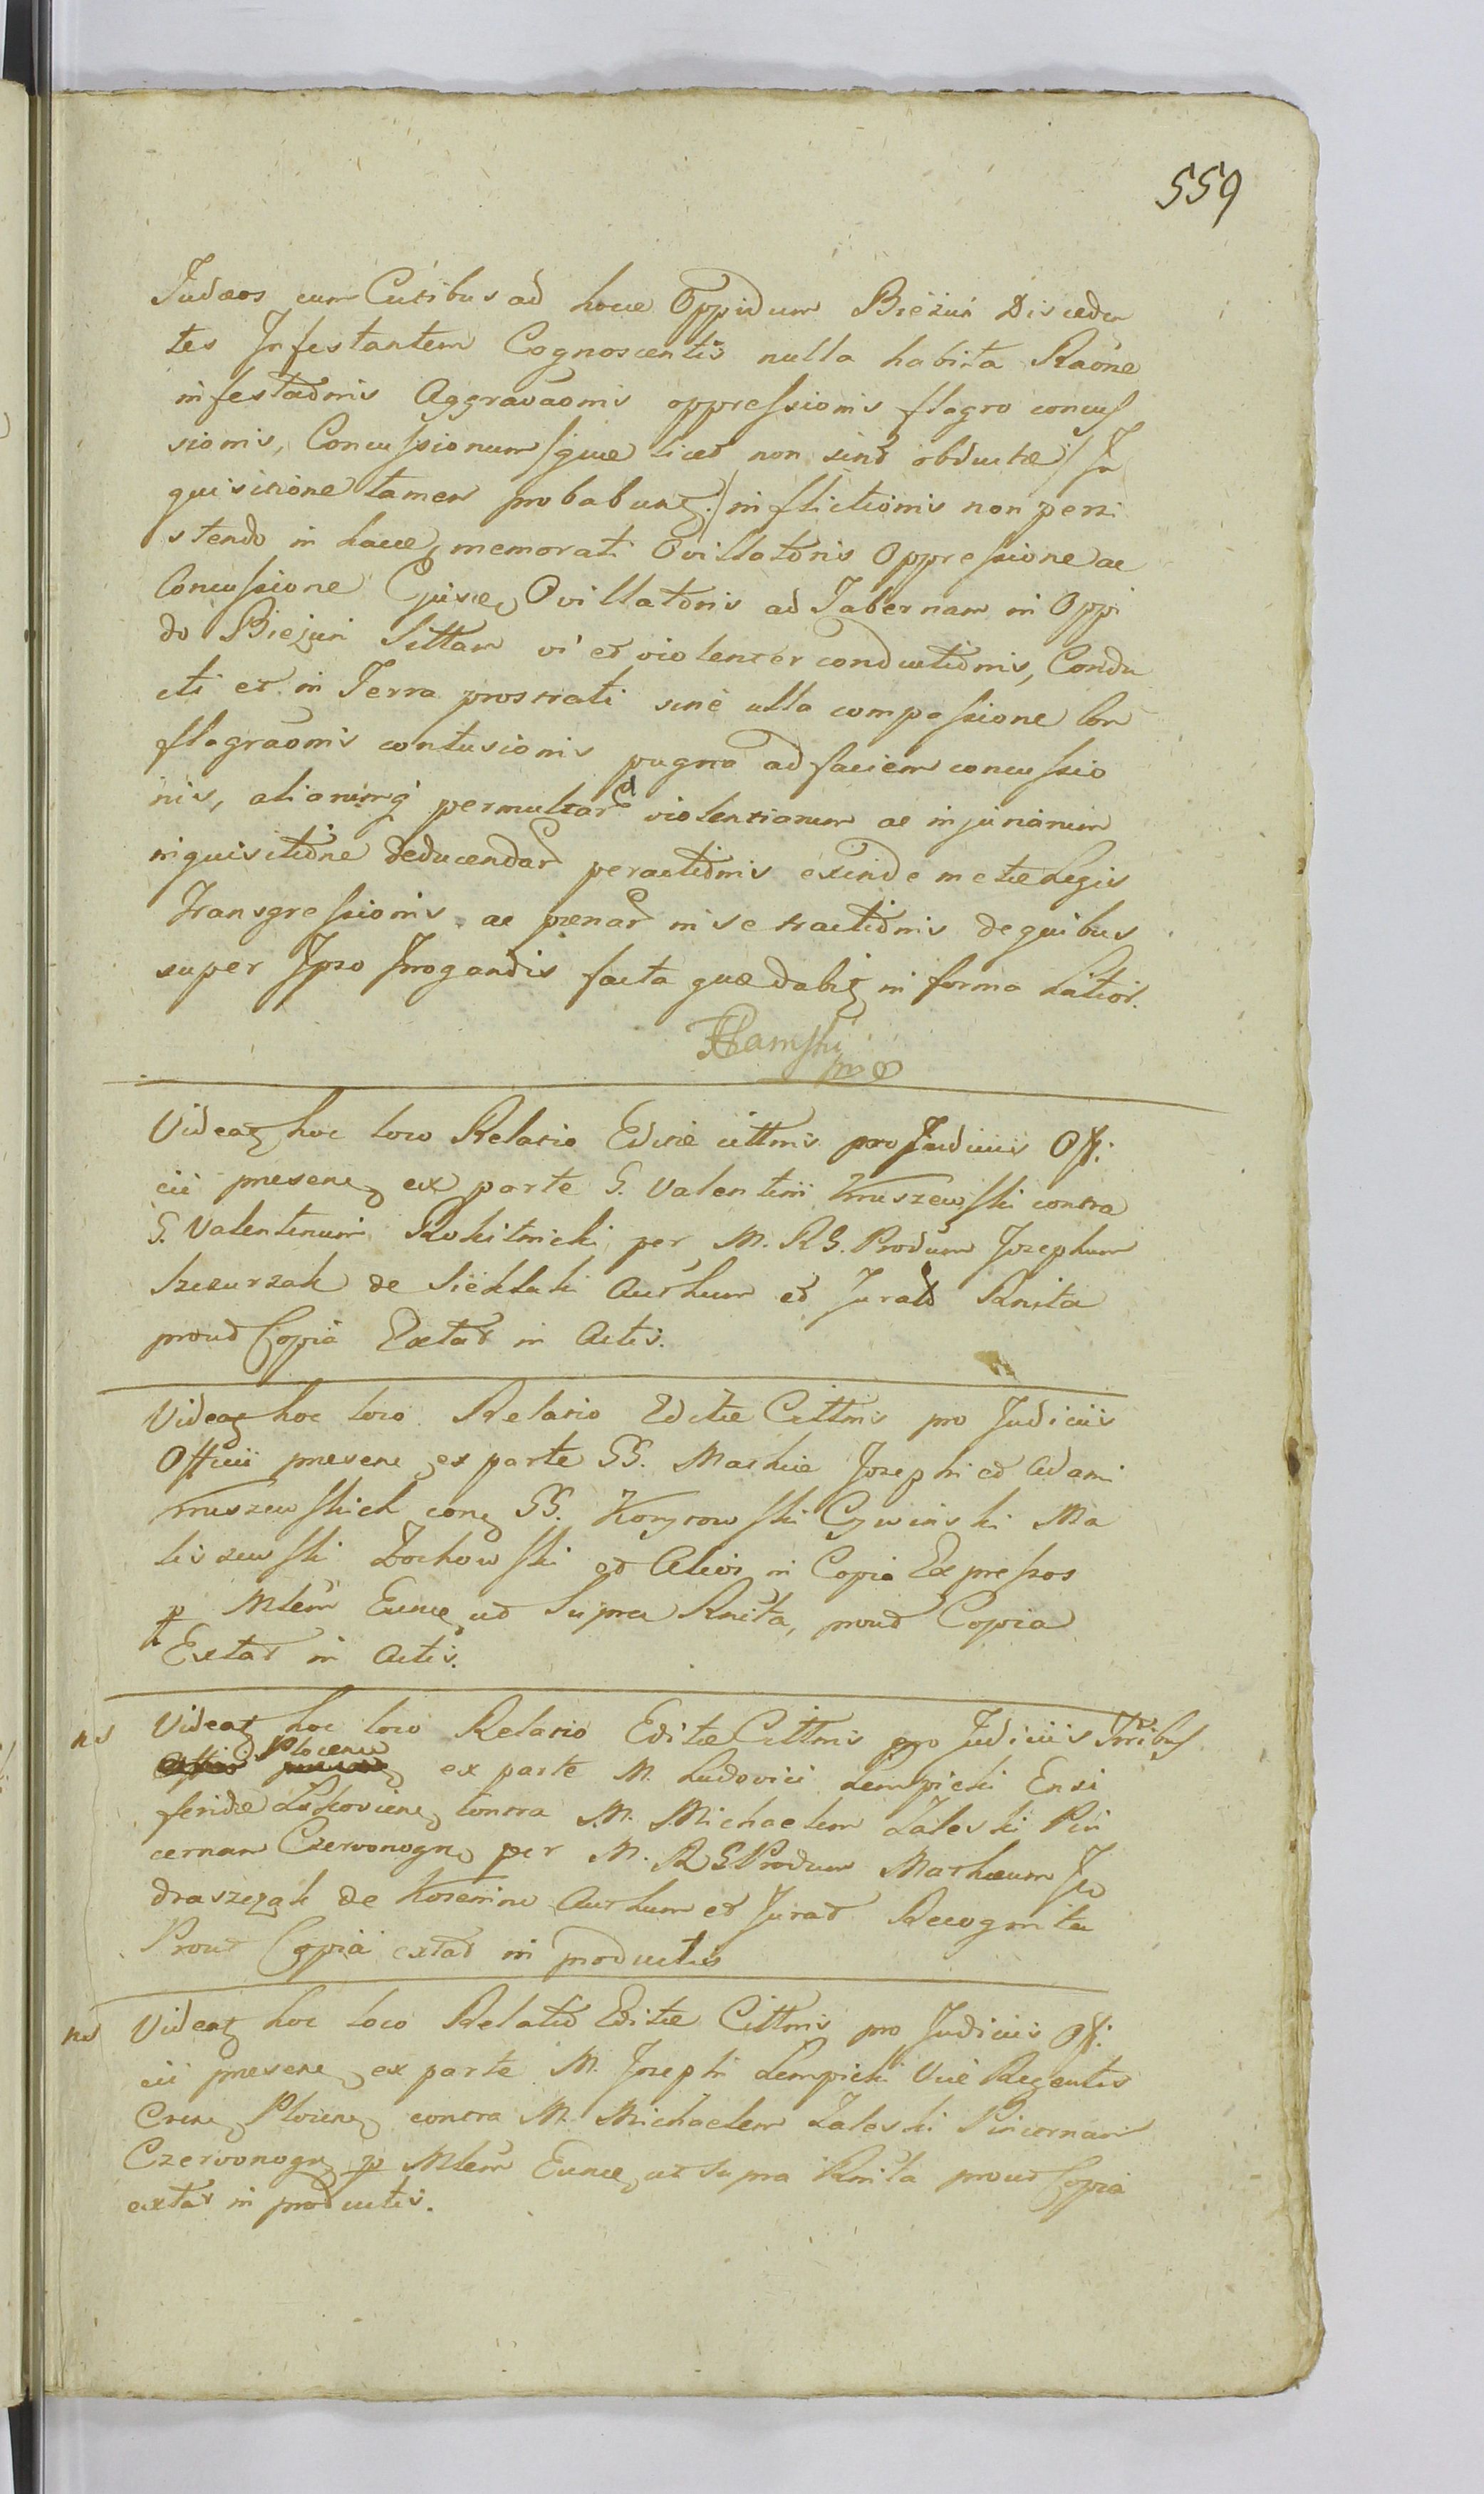 559
Judæos cum Cutibus ad hocce Oppidum Bieżuń Disceden
tes Infestantem Cognoscentis nulla habita Raõne
infestaõnis Aggravaõnis oppressionis flagro concus
sionis, Concussionum /:quæ licet non sint obductæ/ In
quisitione tamen probabunt:/ inflictionis non persi
stendo in hacce memorati Ovillatoris Oppressione ac
Concussione Ejusce Ovillatoris ad Tabernam in Oppi
do Bieżuń Sittam vi et violenter conductionis, Condu
cti et in Terra prostrati sine ulla compassione Con
flagraõnis contusionis pugno ad faciem concussio
nis, aliarumq permultar violentiarum ac injuriarum
inquisitione deducendar peractionis exinde metæ Legis
Transgressionis ac pænar in se tractionis de quibus
super Ipso Irrogandis facta quædabit in forma Latior.
mp
Videat hoc loco Relatio Editæ cittõnis pro Judiciis Offi:
cii presenc ex parte G. Valentini Kruszewski contra
G. Valentinum Rokitnicki per M. R G. Prodūm Josephum
Szczurzak de Sieklaki Authum et Jurat Rnita
prout Copia Extat in Actis.
Videat hoc loco Relatio Editæ Cittõnis pro Judiciis
Officii presenc ex parte GG. Mathiæ Josephi et Adami
Kruszewskich con GG. Korzrowski Cywinski Ma
liszewski Żochowski et Alios in Copia Expressos
p Mlem Eunc ut Supra Rnita, prout Copia
Extat in Actis.
ns Videat hoc loco Relatio Editæ Cittõnis pro Judiciis Trribus
Plocenc ex parte M. Ludovici Lempicki Ensi
feridæ contra M. Michaelem Zaleski Pin
cernam Czervonogr per M. R G Prodūm Mathæum Ję
draszczak de Kosemin Authum et Jurat Recognita
Prout Copia extat in productis
ns Videat hoc loco Relatio Editæ Cittõnis pro Judiciis Offi:
cii presenc ex parte M. Josephi Lempicki Vice Regentis
Cren Plocen contra M. Michaelem Zaleski Pincernam
Czervonogr p Mlem Eunc ut supra Rnita prout Copia
extat in productis.